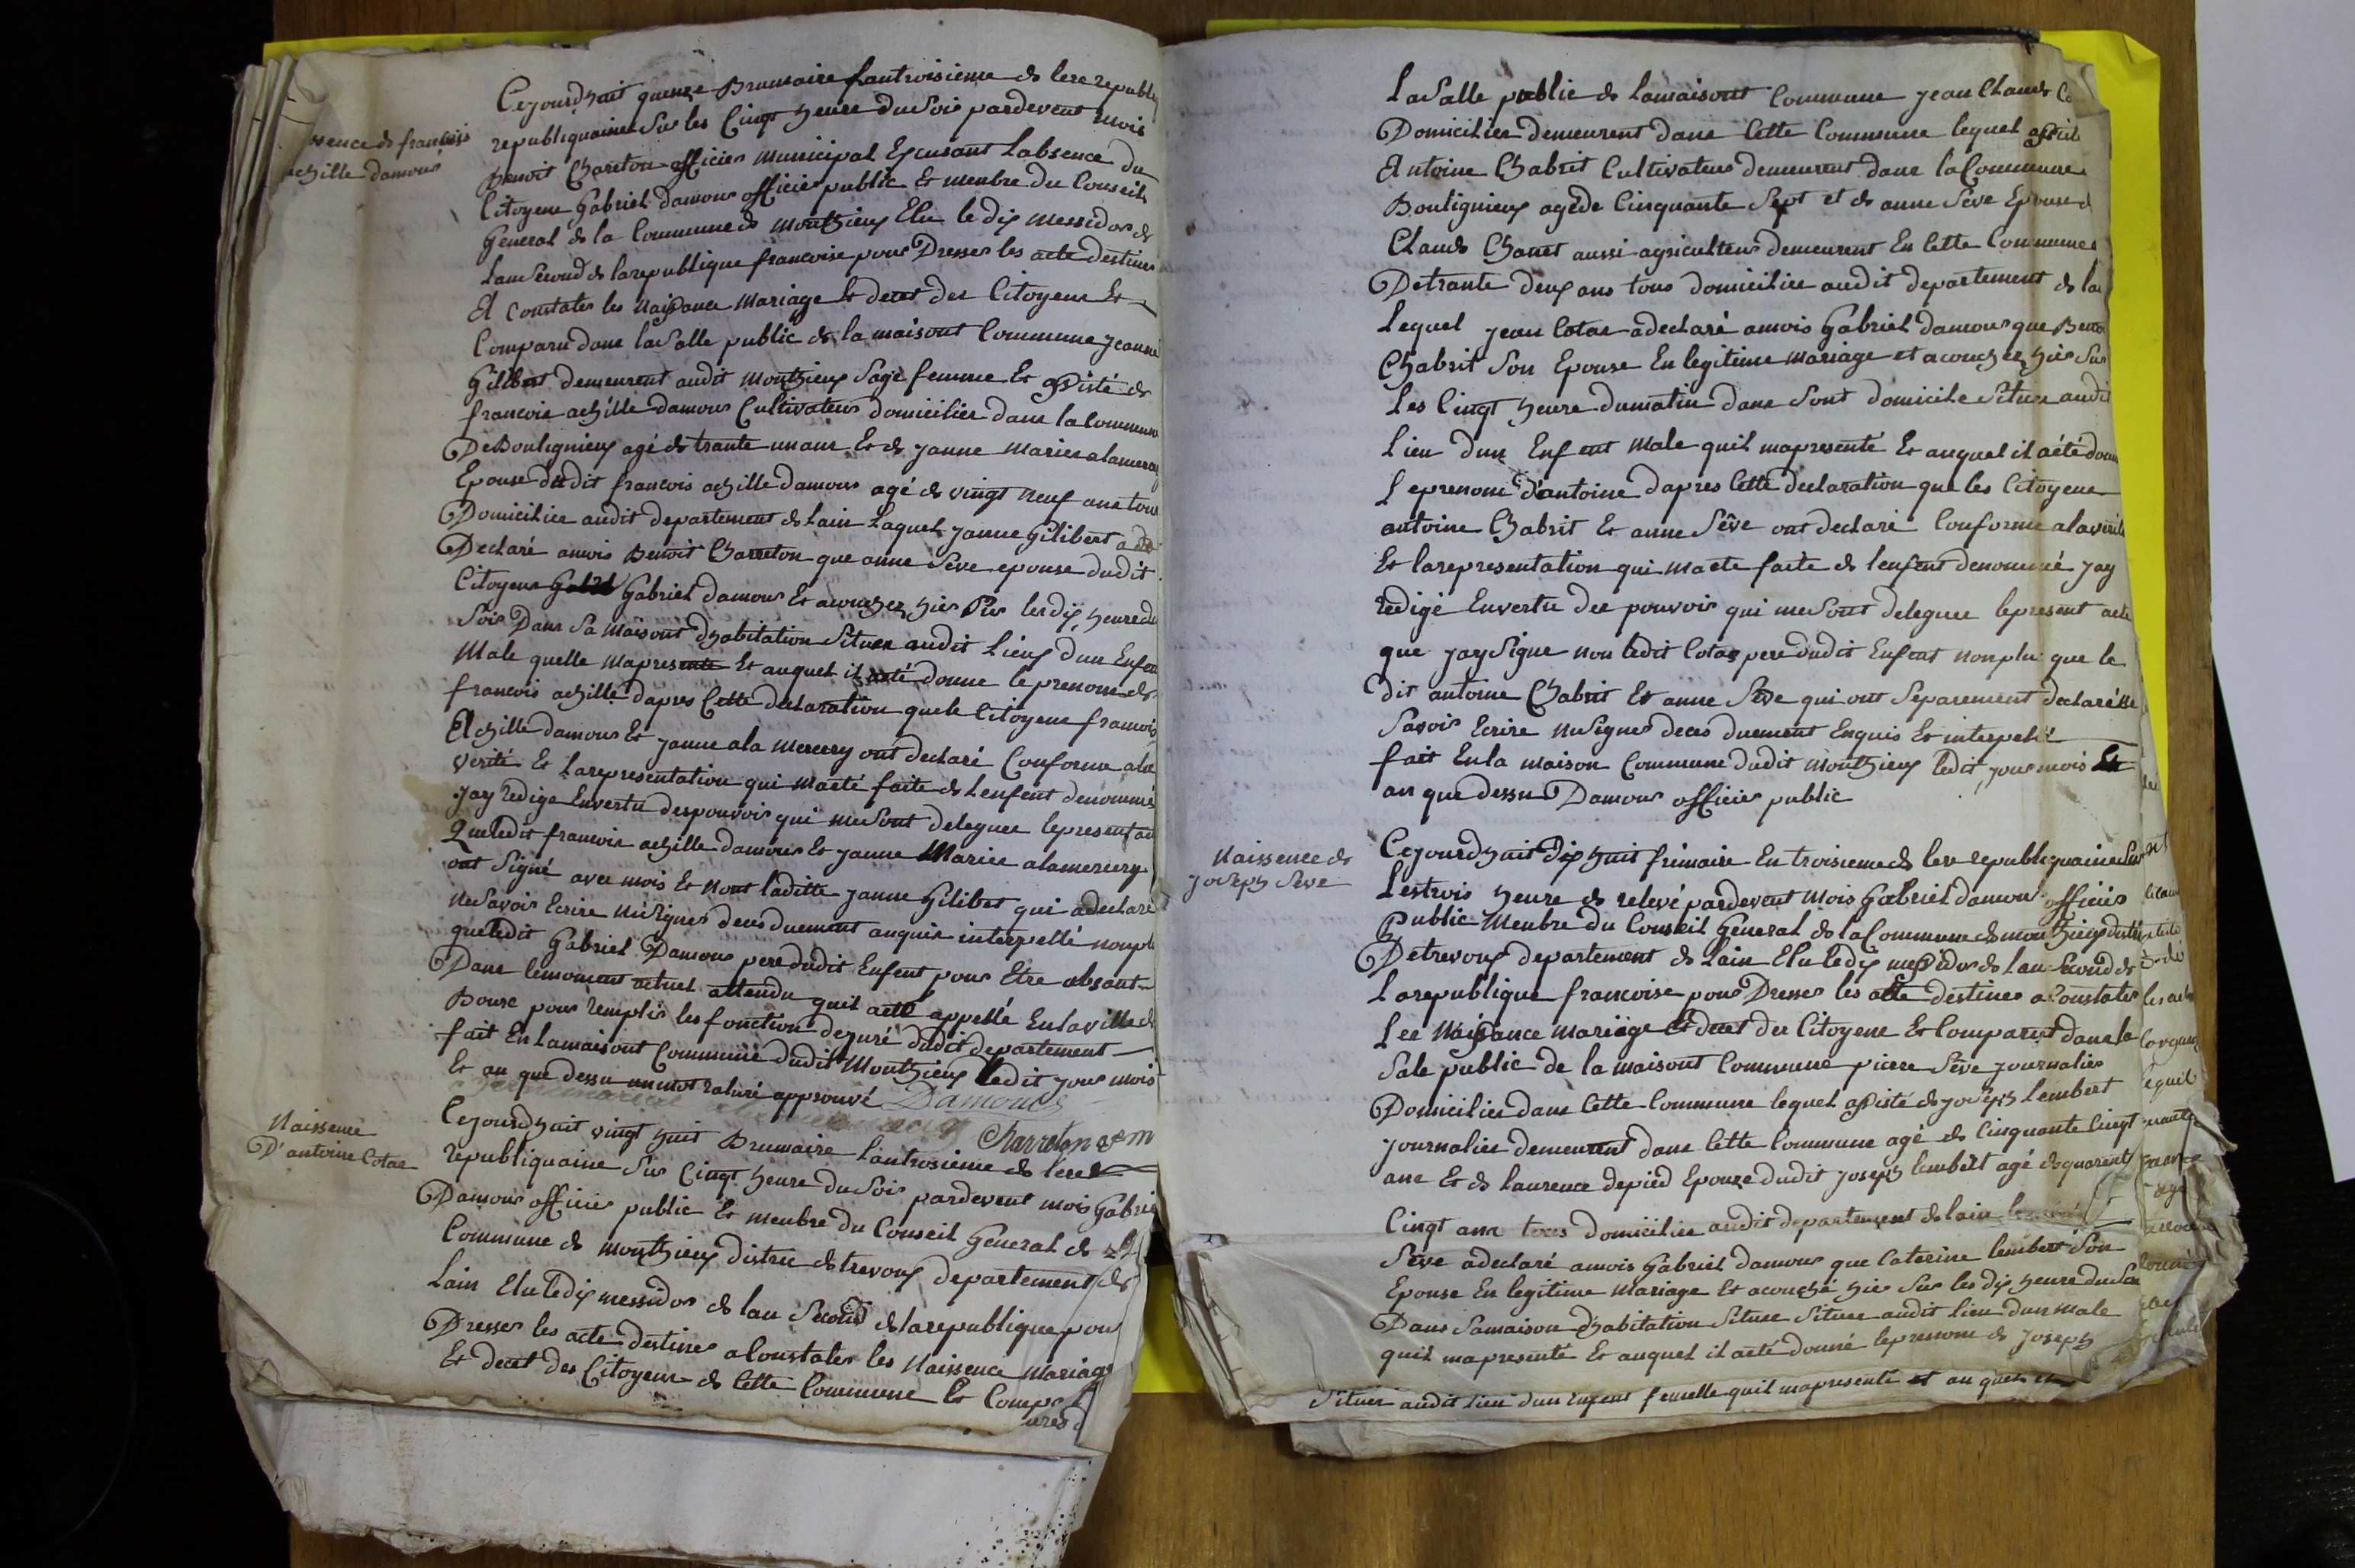 Cejourdhuit quinze Brumaire Lantroisieme de lere republi
republiquaine Sur les Cinqt heure du Soir pardevent mois
Benoit Charreton officier Municipal Excusant Labsence du
Citoyene Gabriel damour officier public Et menbre du Conseils
General de la Commune de Monthieux Elu le dix Messidor de
Lan Second de la republique francoise pour Dresser les acte destines
A Constater les Naissance Mariage Et decet des Citoyene Et
Comparu dans la Salle public de la maisont Commune Jeanne
Gilibert demeurent audit Monthieux Sage femme Et assisté de
francois achille damour Cultivateur domicilier dans la Commune
De Bouligneux agé de trante un ans Et de Janne Mariee alamercery
Epouse dudit francois achille damour agé de vingt neuf ans tous
Domicilier audit departement de Lain Laquel Janne Gilibert a de
Declaré amois Benoit Charreton que anne Sève epouse dudit
Citoyene Gabriel damour Et acouchez hier Sur les dix heure du
Soir Dans Sa Maisont dhabitation Situer audit Lieux dun Enfen
Male quelle mapresente Et auquel il aeté donne le prenom de
francois achille dapres Cette declaration que le Citoyene francois
Achille damour Et Janne ala Mercery ont declaré Conforme ala
verité Et Larepresentation qui maeté faite de Lenfent denommé
Jay redige Envertu des pouvoir qui me Sont deleguee lepresent
Queledit francois achille damour Et Janne Mariee alamercery
ont Signé avec mois Et Nont laditte Janne Gilibert qui adeclaré
ne Savoir Ecrire Ni Signer deces duement anquis interpellé nonplu
queledit Gabriel Damour pere dudit Enfent pour Etre absant
Dans lemoment actuel attendu quil aeté appellé Enla ville de
Bourc pour remplir les fonction dejuré dudit departement
fait En Lamaisont Commune dudit Monthieux ledit jour mois
Et an que dessu unmot raturé approuvé Damour
Charreton
Naissence de francois
achille damour
Naissence
D'antoine Cotae
Cejourdhuit vingt huit Brumaire Lantrosieme de lere
republiquaine Sur Cinqt heure du Soir pardevent mois Gabriel
Damour officier public Et menbre du Conseil General de la
Commune de Monthieux district de trevoux departement de
Lain Elu le dix messidor de lan Second de larepublique pour
Dresser les acte destines aConstater les Naissence Mariage
Et decet des Citoyene de Cette Commune Et Compa
LaSalle public de Lamaisont Commune Jean Claude
Domicilier demeurent dans Cette Commune lequel assisté
Antoine Chabrit Cultivateur demeurent dans la Commune
Bouligneux agé de Cinquante Sept et de anne Sève Epouse d
Claude Chanet aussi agriculteur demeurent En Cette Commune
De trante deux ans tous domicilier audit departement de la
Lequel Jean Cotae adeclaré amois Gabriel damour que Beno
Chabrit Son Epouse En legitime Mariage et acouchez hier Sur
Les Cinqt heure dumatin dans Sont domicile Situer audit
Lieu dun Enfent Male quil mapresenté Et auquel il aété donn
Leprenom d'antoine dapres Cette declaration que les Citoyene
antoine Chabrit Et anne Sève ont declaré Conforme alaverité
Et larepresentation qui maete faite de lenfent denommé Jay
redigé Envertu des pouvoir qui me Sont deleguee lepresent acte
que Jay Signe non ledit Cotae pere dudit Enfent nonplu que le
dit antoine Chabrit Et anne Sève qui ont Separement declaré Ne
Savoir Ecrire Ni Signer deces duement Enquis Et interpellé
fait Enla maison Commune dudit Monthieux ledit jour mois Et
an que dessu Damour officier public
Naissence de
joseph Seve
Cejourdhuit dix huit frimaire En troisieme de lere republiquaine Sur
Lestrois heure de relevé pardevent Mois Gabriel damour officier
Public Menbre du Conseil General de la Commune de monthieux
De trevoux departement de Lain Elu ledix messidor de Lan Second de
Larepublique francoise pour Dresser les acte destiner aConstater
Les Naissance Mariage Et decet des Citoyene Et Comparest dans la
Sale public de la maisont Commune pierre Sève journalier
Domicilier dans Cette Commune lequel assisté de joseph Lembert
journalier demeurent dans Cette Commune agé de Cinquante Cinqt
ans Et de Laurence depied Epouze dudit joseph Lembert agé de quarente
Cinqt ans tous domicilier audit departement de lain
Sève adeclaré amois Gabriel damour que Caterine Lembert Son
Epouse En legitime Mariage Et acouché hier Sur les dix heure du Soir
Dans Samaison dhabitation Situee Situee audit lieu dun male
quil mapresenté Et auquel il aété donné leprenom de joseph
Situer audit Lieu dun Enfent femelle quil mapresenté et au quel